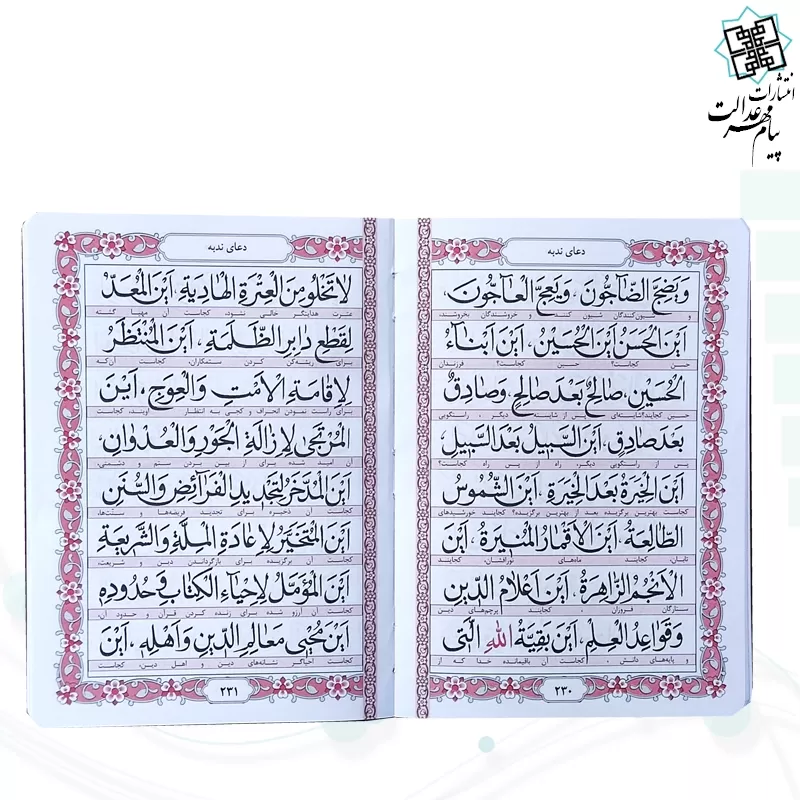 انتشارات
پیام مهر عدالت
دعای ندبه
وَیَضِجَّ الضّاجُّونَ، وَیَعِجَّ الْعاجُّونَ،
و شیون‌کنندگان شیون کنند و خروشندگان بخروشند،
اَیْنَ الْحَسَنُ اَیْنَ الْحُسَیْنُ، اَیْنَ اَبْنآءُ
حسن کجاست؟ حسین کجاست؟ فرزندان
الْحُسَیْنِ، صالِحٌ بَعْدَ صالِحٍ، وَصادِقٌ
حسین کجایند؟ شایسته‌ای پس از شایسته‌ای دیگر، راستگویی
بَعْدَ صادِقٍ، اَیْنَ السَّبیلُ بَعْدَ السَّبیلِ،
پس از راستگویی دیگر، راه از پس راه کجاست؟
اَیْنَ الْخِیَرَةُ بَعْدَ الْخِیَرَةِ، اَیْنَ الشُّمُوسُ
کجاست بهترین برگزیده بعد از بهترین برگزیده؟ کجایند خورشیدهای
الطّالِعَةُ، اَیْنَ الْاَقْمارُ الْمُنیرَةُ، اَیْنَ
تابان، کجایند ماه‌های نورافشان، کجایند
الْاَنْجُمُ الزّاهِرَةُ، اَیْنَ اَعْلامُ الدّینِ
ستارگان فروزان، کجایند پرچم‌های دین
وَقَواعِدُ الْعِلْمِ، اَیْنَ بَقِیَّةُ اللهِ الَّتی
و پایه‌های دانش، کجاست آن باقیمانده خدا که از
۲۳۰
دعای ندبه
لاتَخْلُو مِنَ الْعِتْرَةِ الْهادِیَةِ، اَیْنَ الْمُعَدُّ
عترت هدایتگر خالی نشود، کجاست آن مهیا گشته
لِقَطْعِ دابِرِ الظَّلَمَةِ، اَیْنَ الْمُنْتَظَرُ
برای ریشه‌کن کردن ستمکاران، کجاست آن‌که
لِاِقامَةِ الْاَمْتِ وَالْعِوَجِ، اَیْنَ
برای راست نمودن انحراف و کجی به انتظار اویند، کجاست
الْمُرْتَجی لِاِزالَةِ الْجَوْرِ وَالْعُدْوانِ،
آن امید شده برای از بین بردن ستم و دشمنی،
اَیْنَ الْمُدَّخَرُ لِتَجْدیدِ الْفَرآئِضِ وَالسُّنَنِ
کجاست آن ذخیره برای تجدید فریضه‌ها و سنت‌ها،
اَیْنَ الْمُتَخَیَّرُ لِاِعادَةِ الْمِلَّةِ وَالشَّریعَةِ
کجاست آن برگزیده برای بازگرداندن دین و شریعت،
اَیْنَ الْمُؤَمَّلُ لِاِحْیآءِ الْکِتابِ وَحُدُودِهِ
کجاست آن آرزو شده برای زنده کردن قرآن و حدود آن،
اَیْنَ مُحْیی مَعالِمِ الدّینِ وَاَهْلِهِ، اَیْنَ
کجاست احیاگر نشانه‌های دین و اهل دین، کجاست
۲۳۱